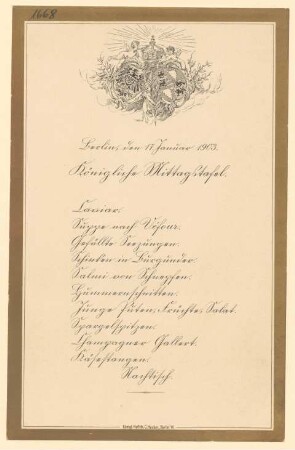 1668
Berlin, den 17. Januar 1903.
Königliche Mittagstafel.
Caviar.
Suppe nach
Gefüllte Seezungen.
Schinken in Burgunder.
Salmi von Schnepfen.
Hummernschnitten.
Junge Puten, Früchte, Salat.
Spargelspitzen.
Champagner Gallert.
Käsestangen.
Nachtisch.